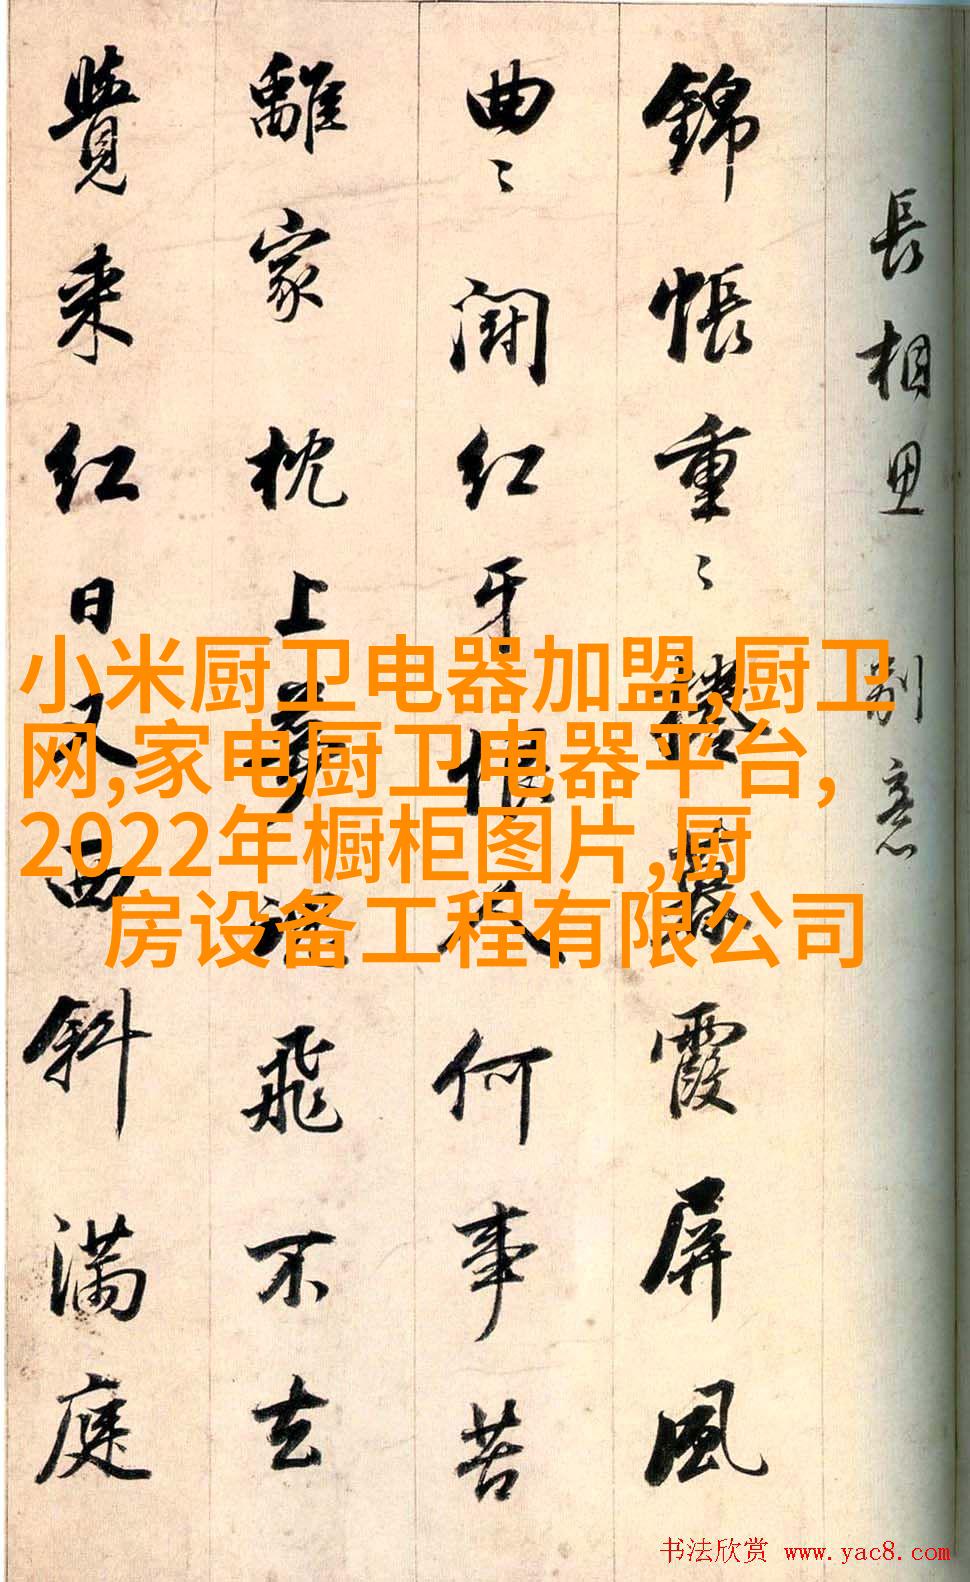 長相思 別意
錦帳重〻捲暮霞屏風
曲〻鬪紅牙恨人何事苦
離家枕上夢魂飛不去
覺來紅日又西斜滿庭
小米厨卫电器加盟,厨卫
网,家电厨卫电器平台,
2022年橱柜图片,厨
房设备工程有限公司
书法欣赏 www.yac8.com